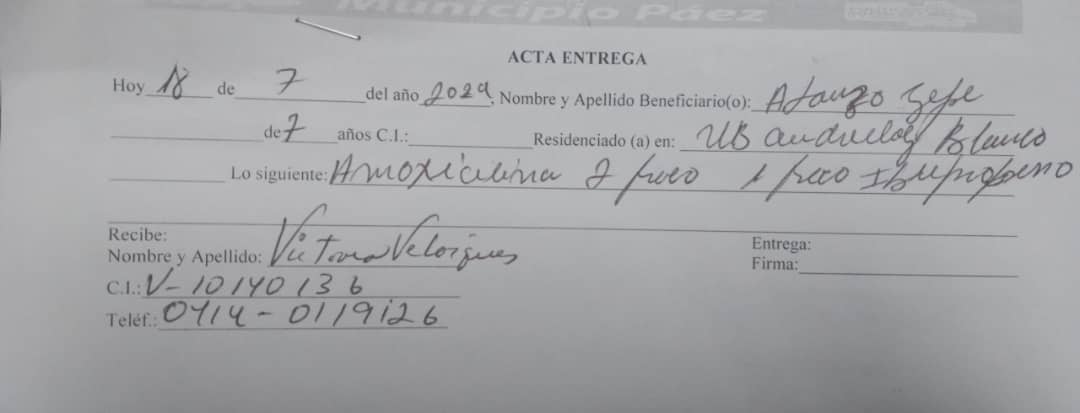 Municipio Páez
ACTA ENTREGA
Hoy 18 de 7 del año 2024, Nombre y Apellido Beneficiario(o): Afanzo
de 7 años C.I.: Residenciado (a) en: UB Blanco
Lo siguiente: Amoxicilina 2 1 Ibuprofeno
Recibe:
Nombre y Apellido: Victoria Velozques
C.I.: V-10140136
Teléf.: 0414-0119126
Entrega:
Firma: